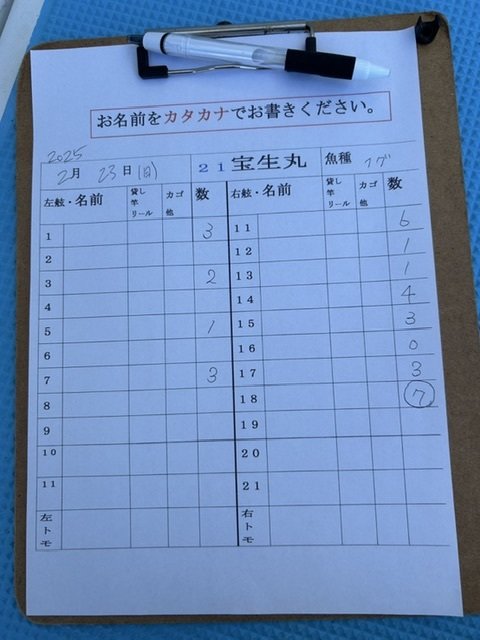 お名前をカタカナでお書きください。
2025
2月 23日(日) 21 宝生丸 魚種 フグ
左舷・名前 貸し竿リール カゴ他 数 右舷・名前 貸し竿リール カゴ他 数
1 3 11 6
2 12 1
3 2 13 1
4 14 4
5 1 15 3
6 16 0
7 3 17 3
8 18 7
9 19
10 20
11 21
左トモ 右トモ